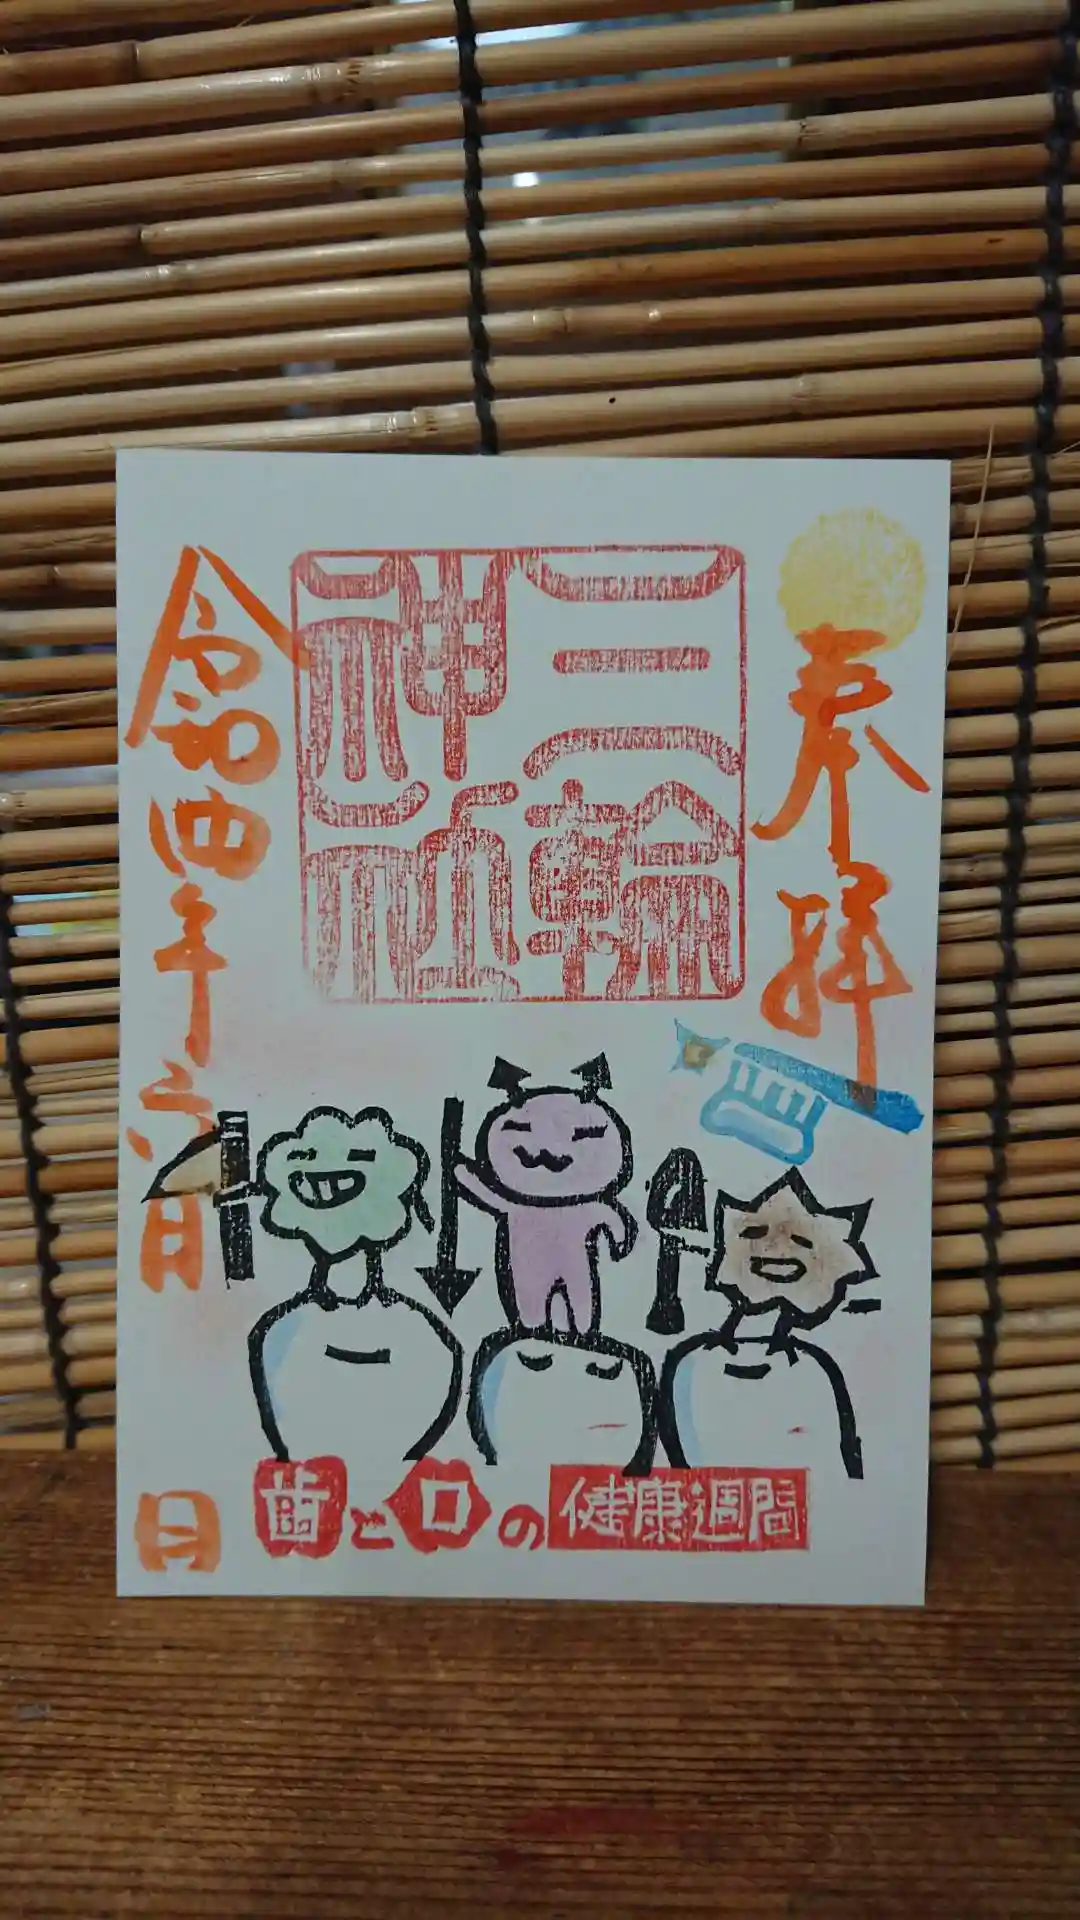 奉拝
三輪
神社
令和四年六月
日
歯と口の健康週間